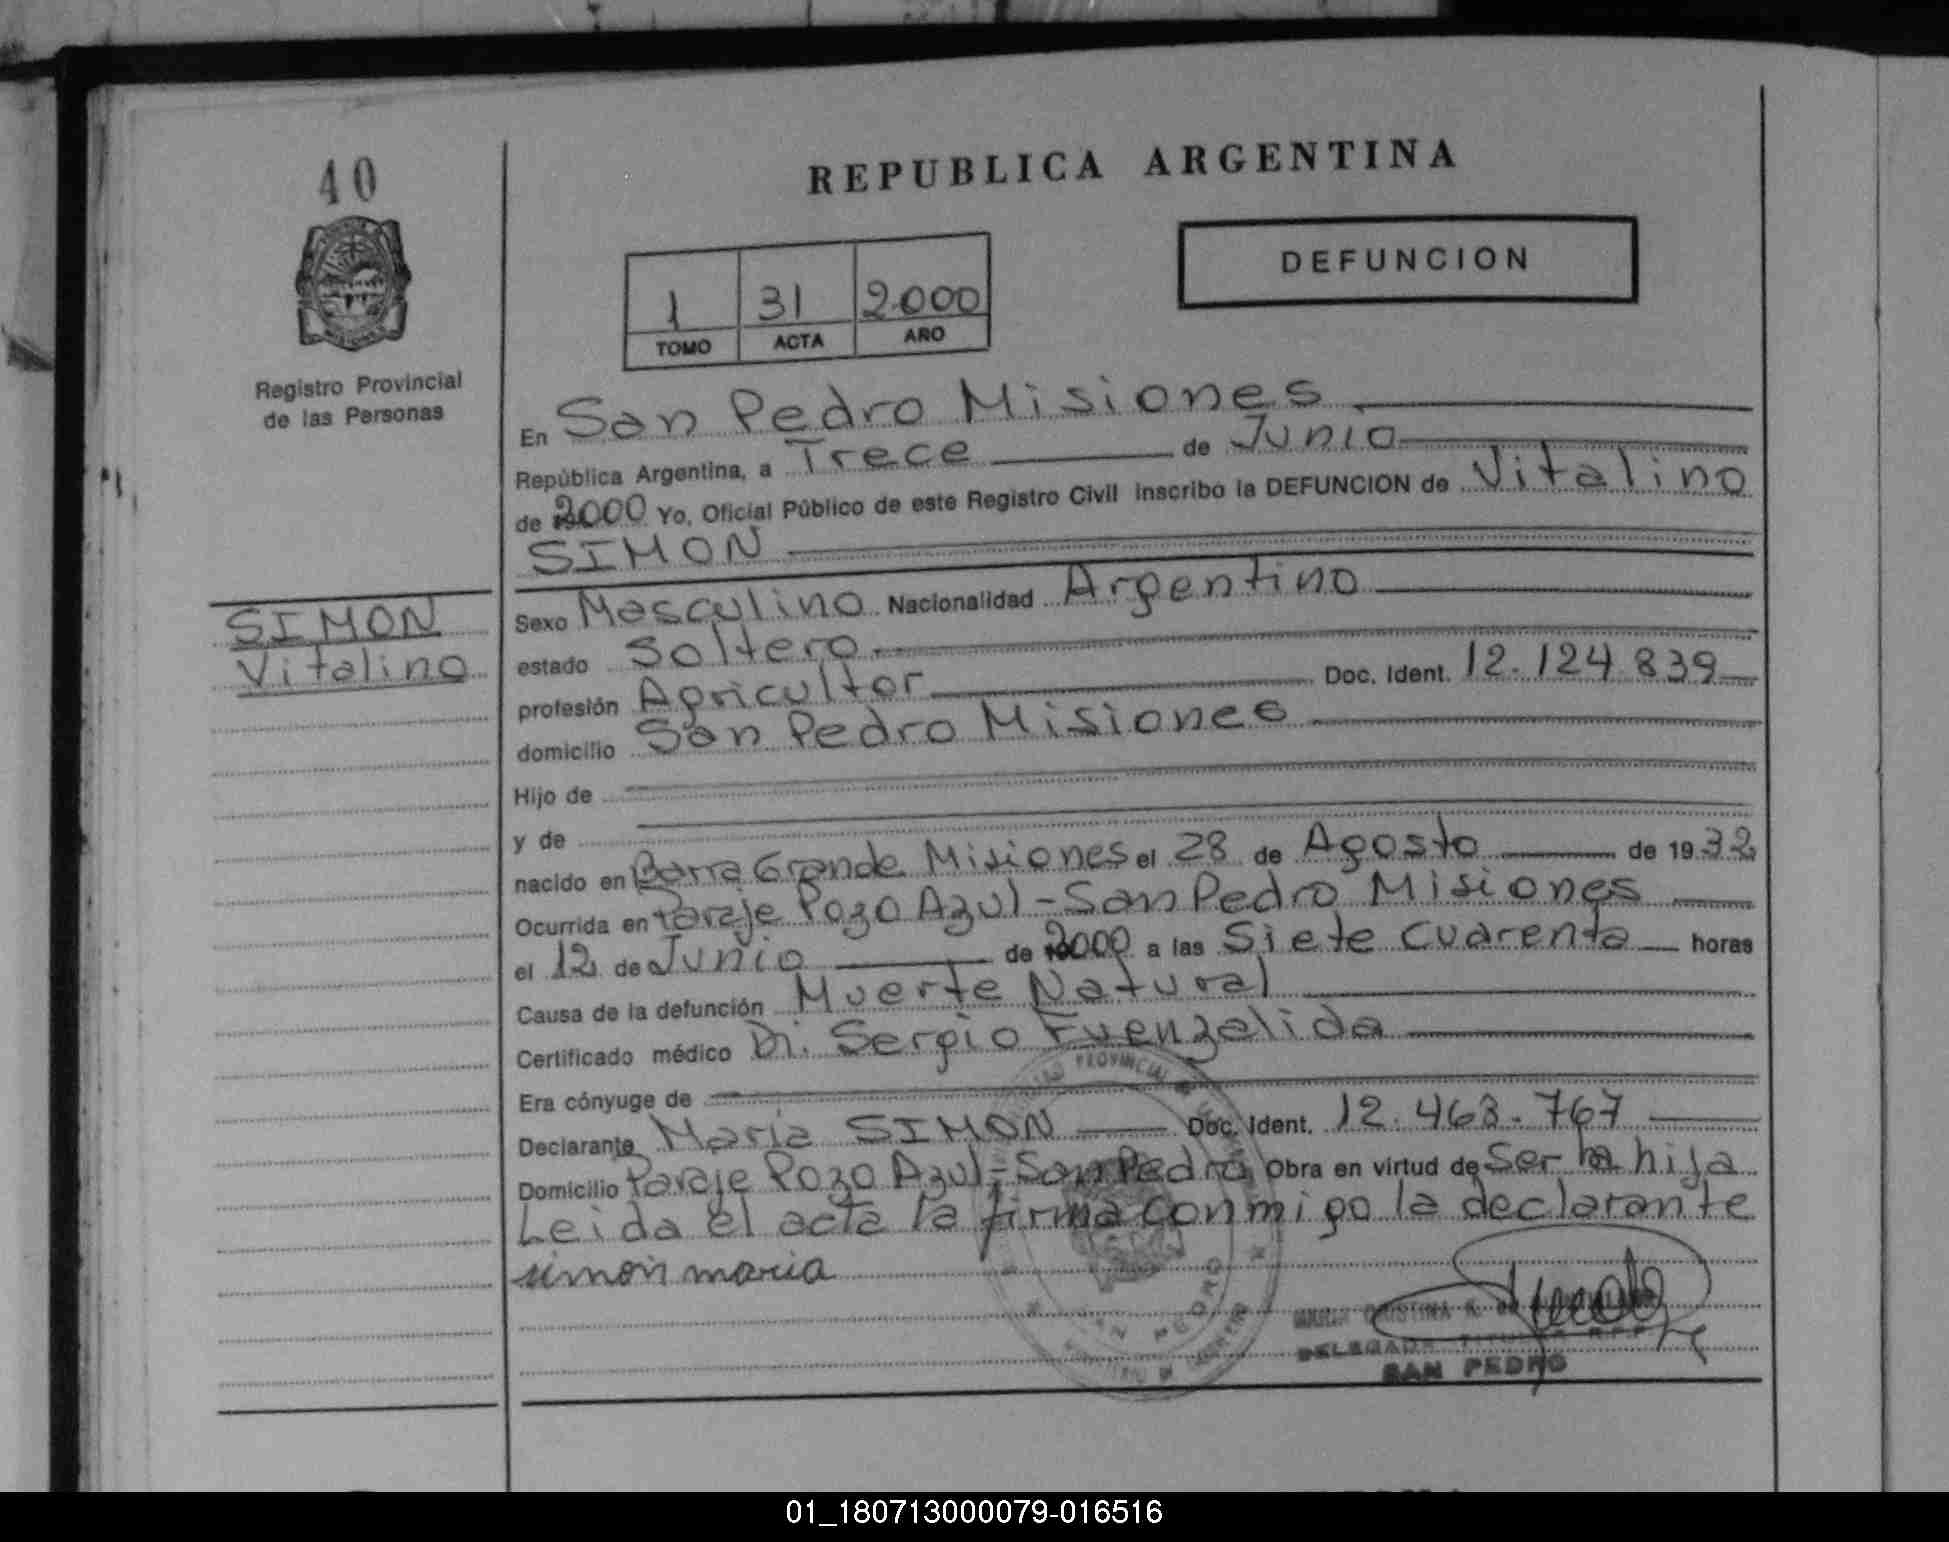 40
Registro Provincial
de las Personas
SIMON
Vitalino
REPUBLICA ARGENTINA
DEFUNCION
1 31 2000
TOMO ACTA AÑO
En San Pedro Misiones
República Argentina, a Trece de Junio
de 2000 Yo, Oficial Público de este Registro Civil inscribo la DEFUNCION de Vitalino
SIMON
Sexo Masculino Nacionalidad Argentino
estado Soltero
profesión Agricultor Doc. Ident. 12.124.839
domicilio San Pedro Misiones
Hijo de
y de
nacido en Barra Grande Misiones el 28 de Agosto de 1932
Ocurrida en Paraje Pozo Azul - San Pedro Misiones
el 12 de Junio de 2000 a las Siete Cuarenta horas
Causa de la defunción Muerte Natural
Certificado médico Dr. Sergio Fuenzalida
Era cónyuge de
Declarante Maria SIMON Doc. Ident. 12.463.767
Domicilio Paraje Pozo Azul - San Pedro Obra en virtud de Ser la hija
Leida el acta la firma conmigo la declarante
simon maria
MARIA CRISTINA
DELEGADA TITULAR R.P.P.
SAN PEDRO
01_180713000079-016516